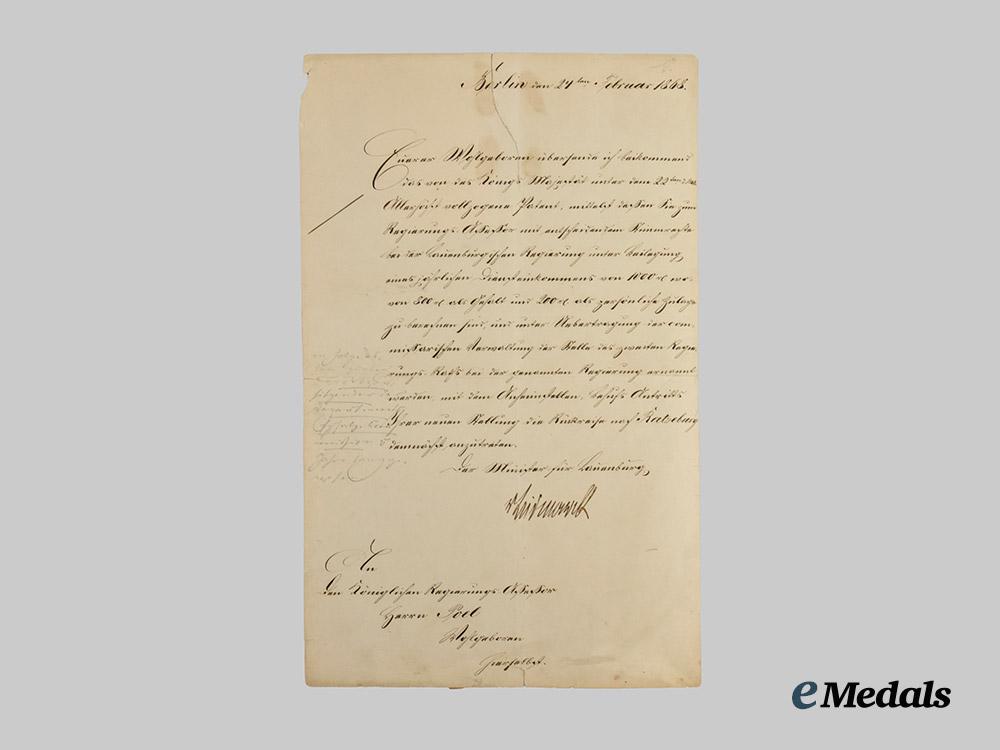 Berlin den 27ten Februar 1868.
Euerer Wohlgeboren übersende ich beikommend
das von des Königs Majestät unter dem 22ten d. Mts.
Allerhöchst vollzogene Patent, mittelst dessen Sie zum
Regierungs-Assessor mit entscheidendem Stimmrechte
bei der Lauenburgischen Regierung unter Beilegung
eines jährlichen Diensteinkommens von 1000 rℓ wo-
von 800 rℓ als Gehalt und 200 rℓ als persönliche Zulage
zu berechnen sind, und unter Uebertragung der com-
missarischen Verwaltung der Stelle des zweiten Regie-
rungs-Raths bei der genannten Regierung ernannt
werden, mit dem Anheimstellen, behufs Antritts
Ihrer neuen Stellung die Rückreise nach Ratzeburg
demnächst anzutreten.
Der Minister für Lauenburg,
vBismarck
An
den Königlichen Regierungs-Assessor
Herrn Poel
Wohlgeboren
hierselbst.
eMedals